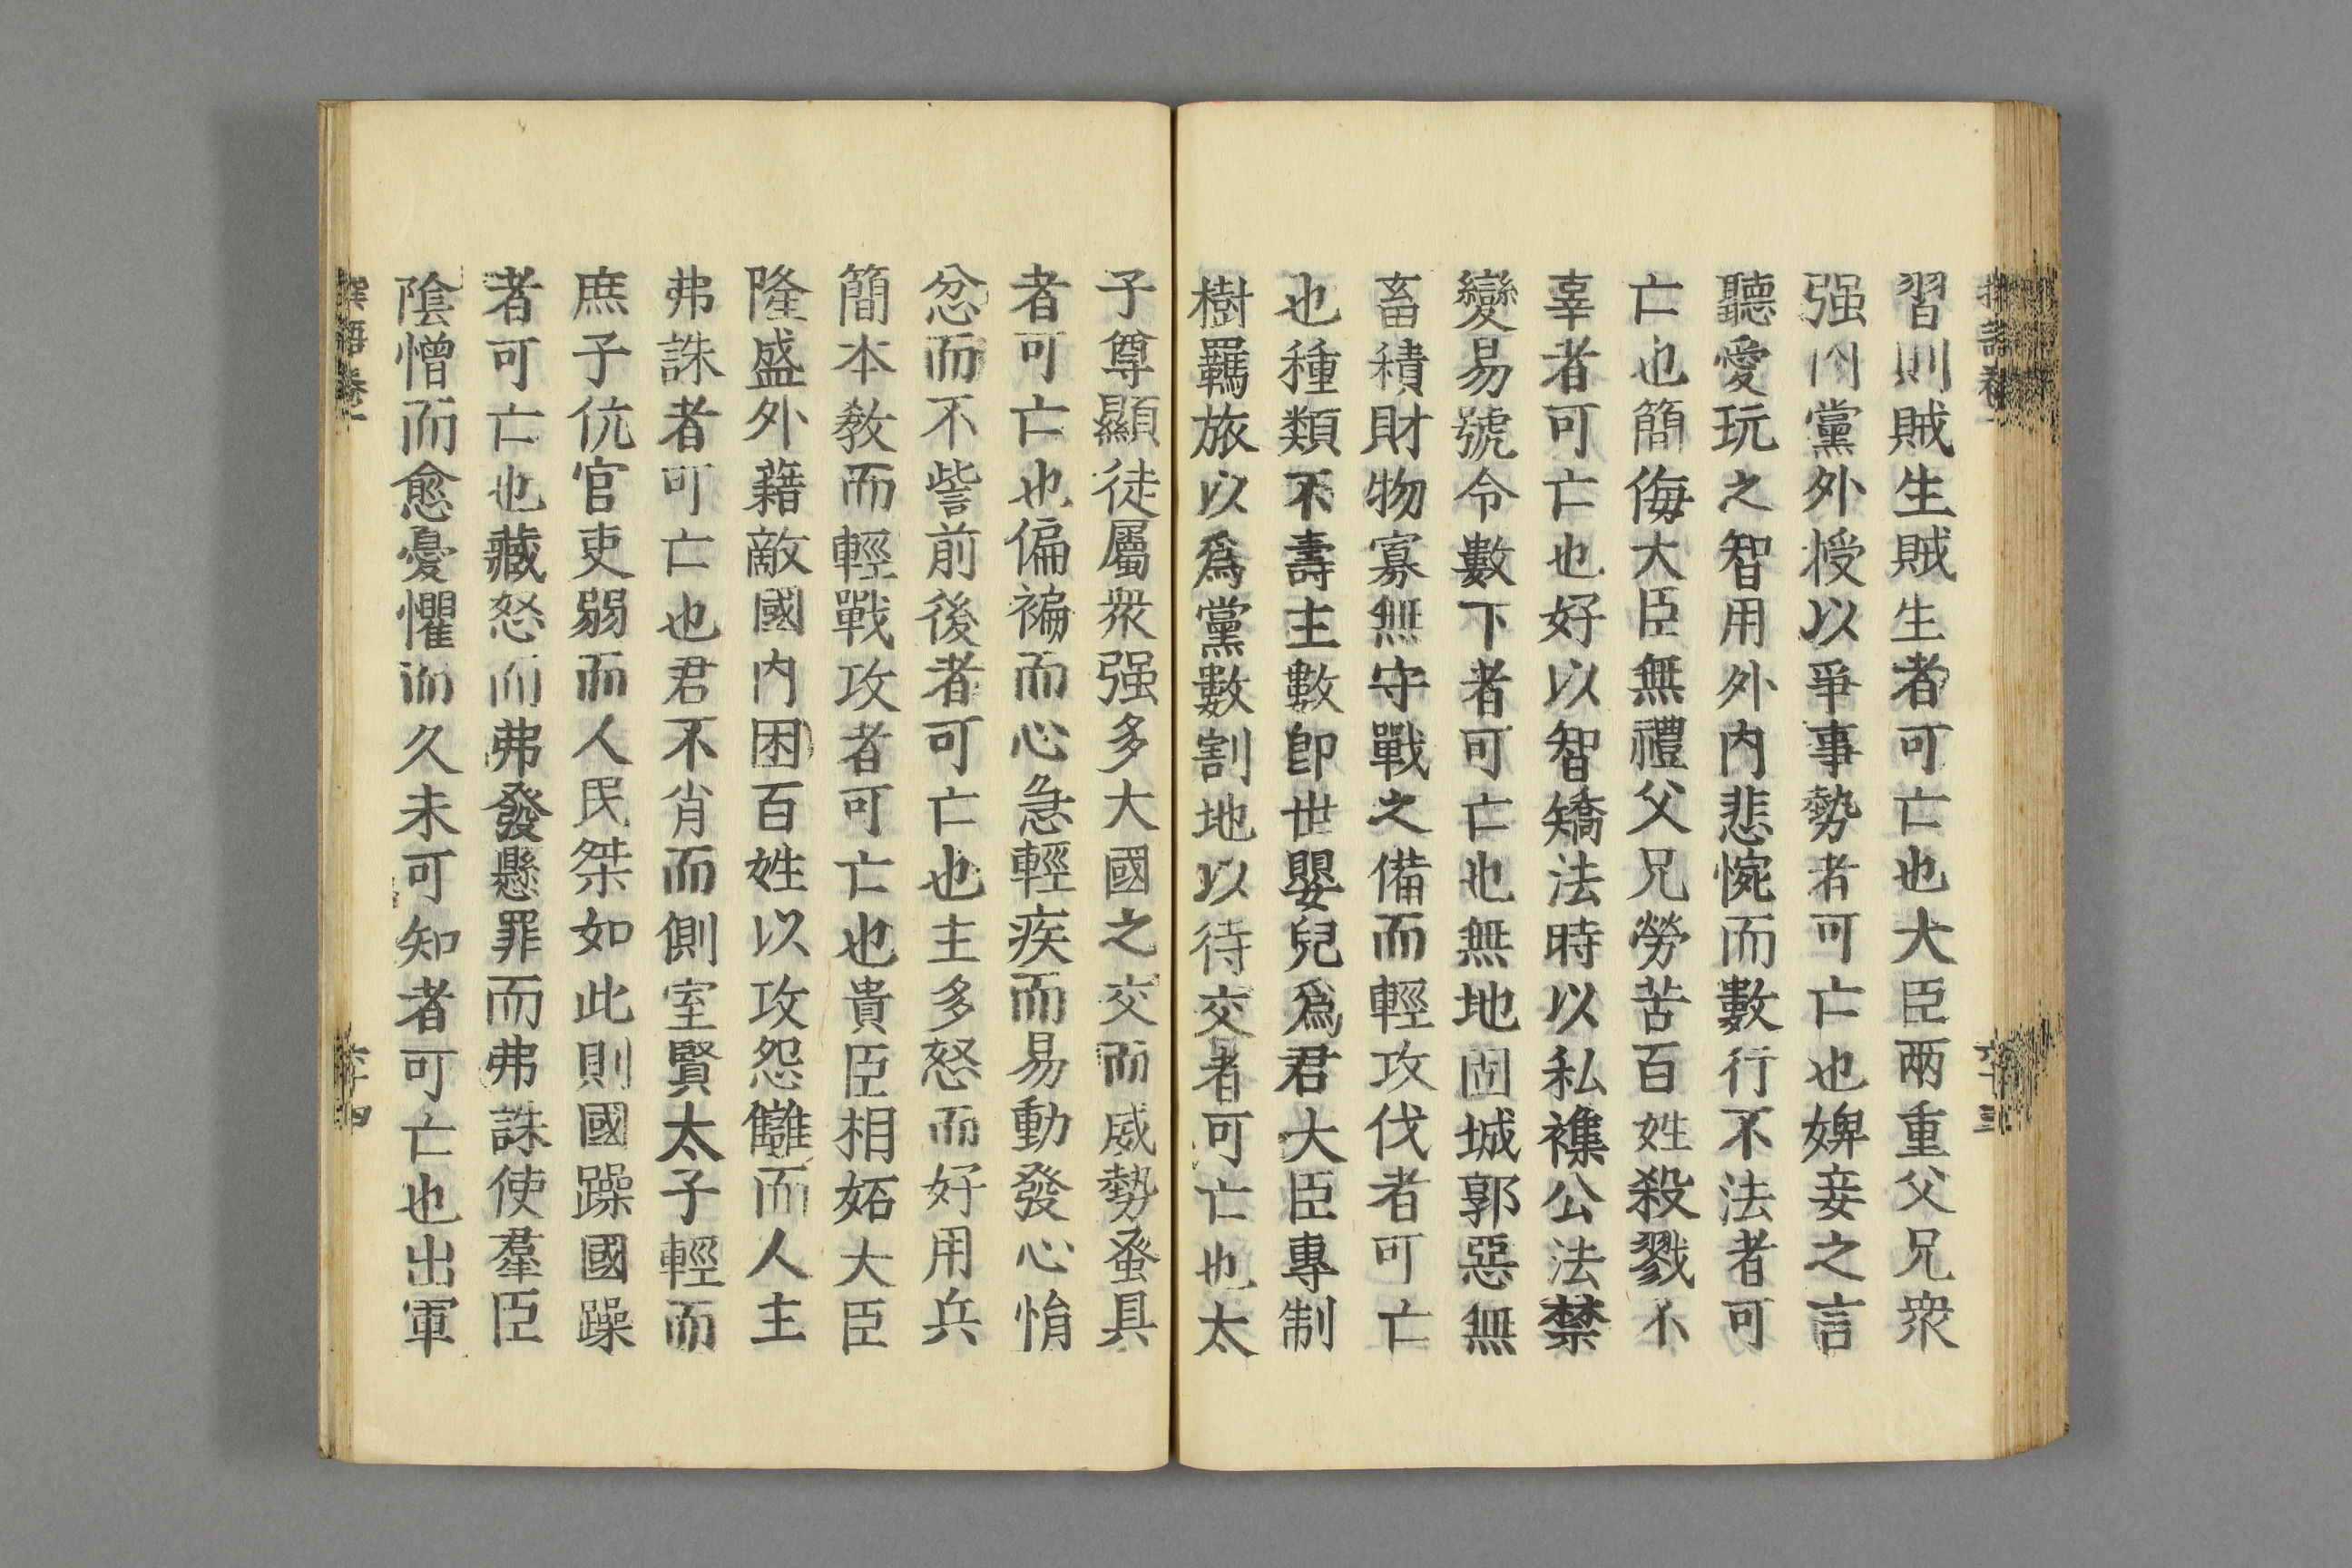 習則賊生賊生者可亡也大臣兩重父兄衆
强內黨外授以爭事勢者可亡也婢妾之言
聽愛玩之智用外內悲惋而數行不法者可
亡也簡侮大臣無禮父兄勞苦百姓殺戮不
辜者可亡也好以智矯法時以私襍公法禁
變易號令數下者可亡也無地固城郭惡無
畜積財物寡無守戰之備而輕攻伐者可亡
也種類不壽主數卽世嬰兒爲君大臣專制
樹羈旅以爲黨數割地以待交者可亡也太
子尊顯徒屬衆强多大國之交而威勢蚤具
者可亡也偏褊而心急輕疾而易動發心悁
忿而不訾前後者可亡也主多怒而好用兵
簡本敎而輕戰攻者可亡也貴臣相妬大臣
隆盛外藉敵國內困百姓以攻怨讎而人主
弗誅者可亡也君不肖而側室賢太子輕而
庶子伉官吏弱而人民桀如此則國躁國躁
者可亡也藏怒而弗發懸罪而弗誅使羣臣
陰憎而愈憂懼而久未可知者可亡也出軍